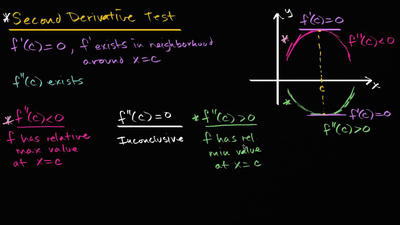 * Second Derivative Test
f'(c) = 0, f' exists in neighborhood
around x = c
f''(c) exists
* f''(c) < 0
f has relative
max value
at x = c
f''(c) = 0
Inconclusive
* f''(c) > 0
f has rel.
min value
at x = c
y
f'(c) = 0
* f''(c) < 0
c
x
*
f'(c) = 0
f''(c) > 0